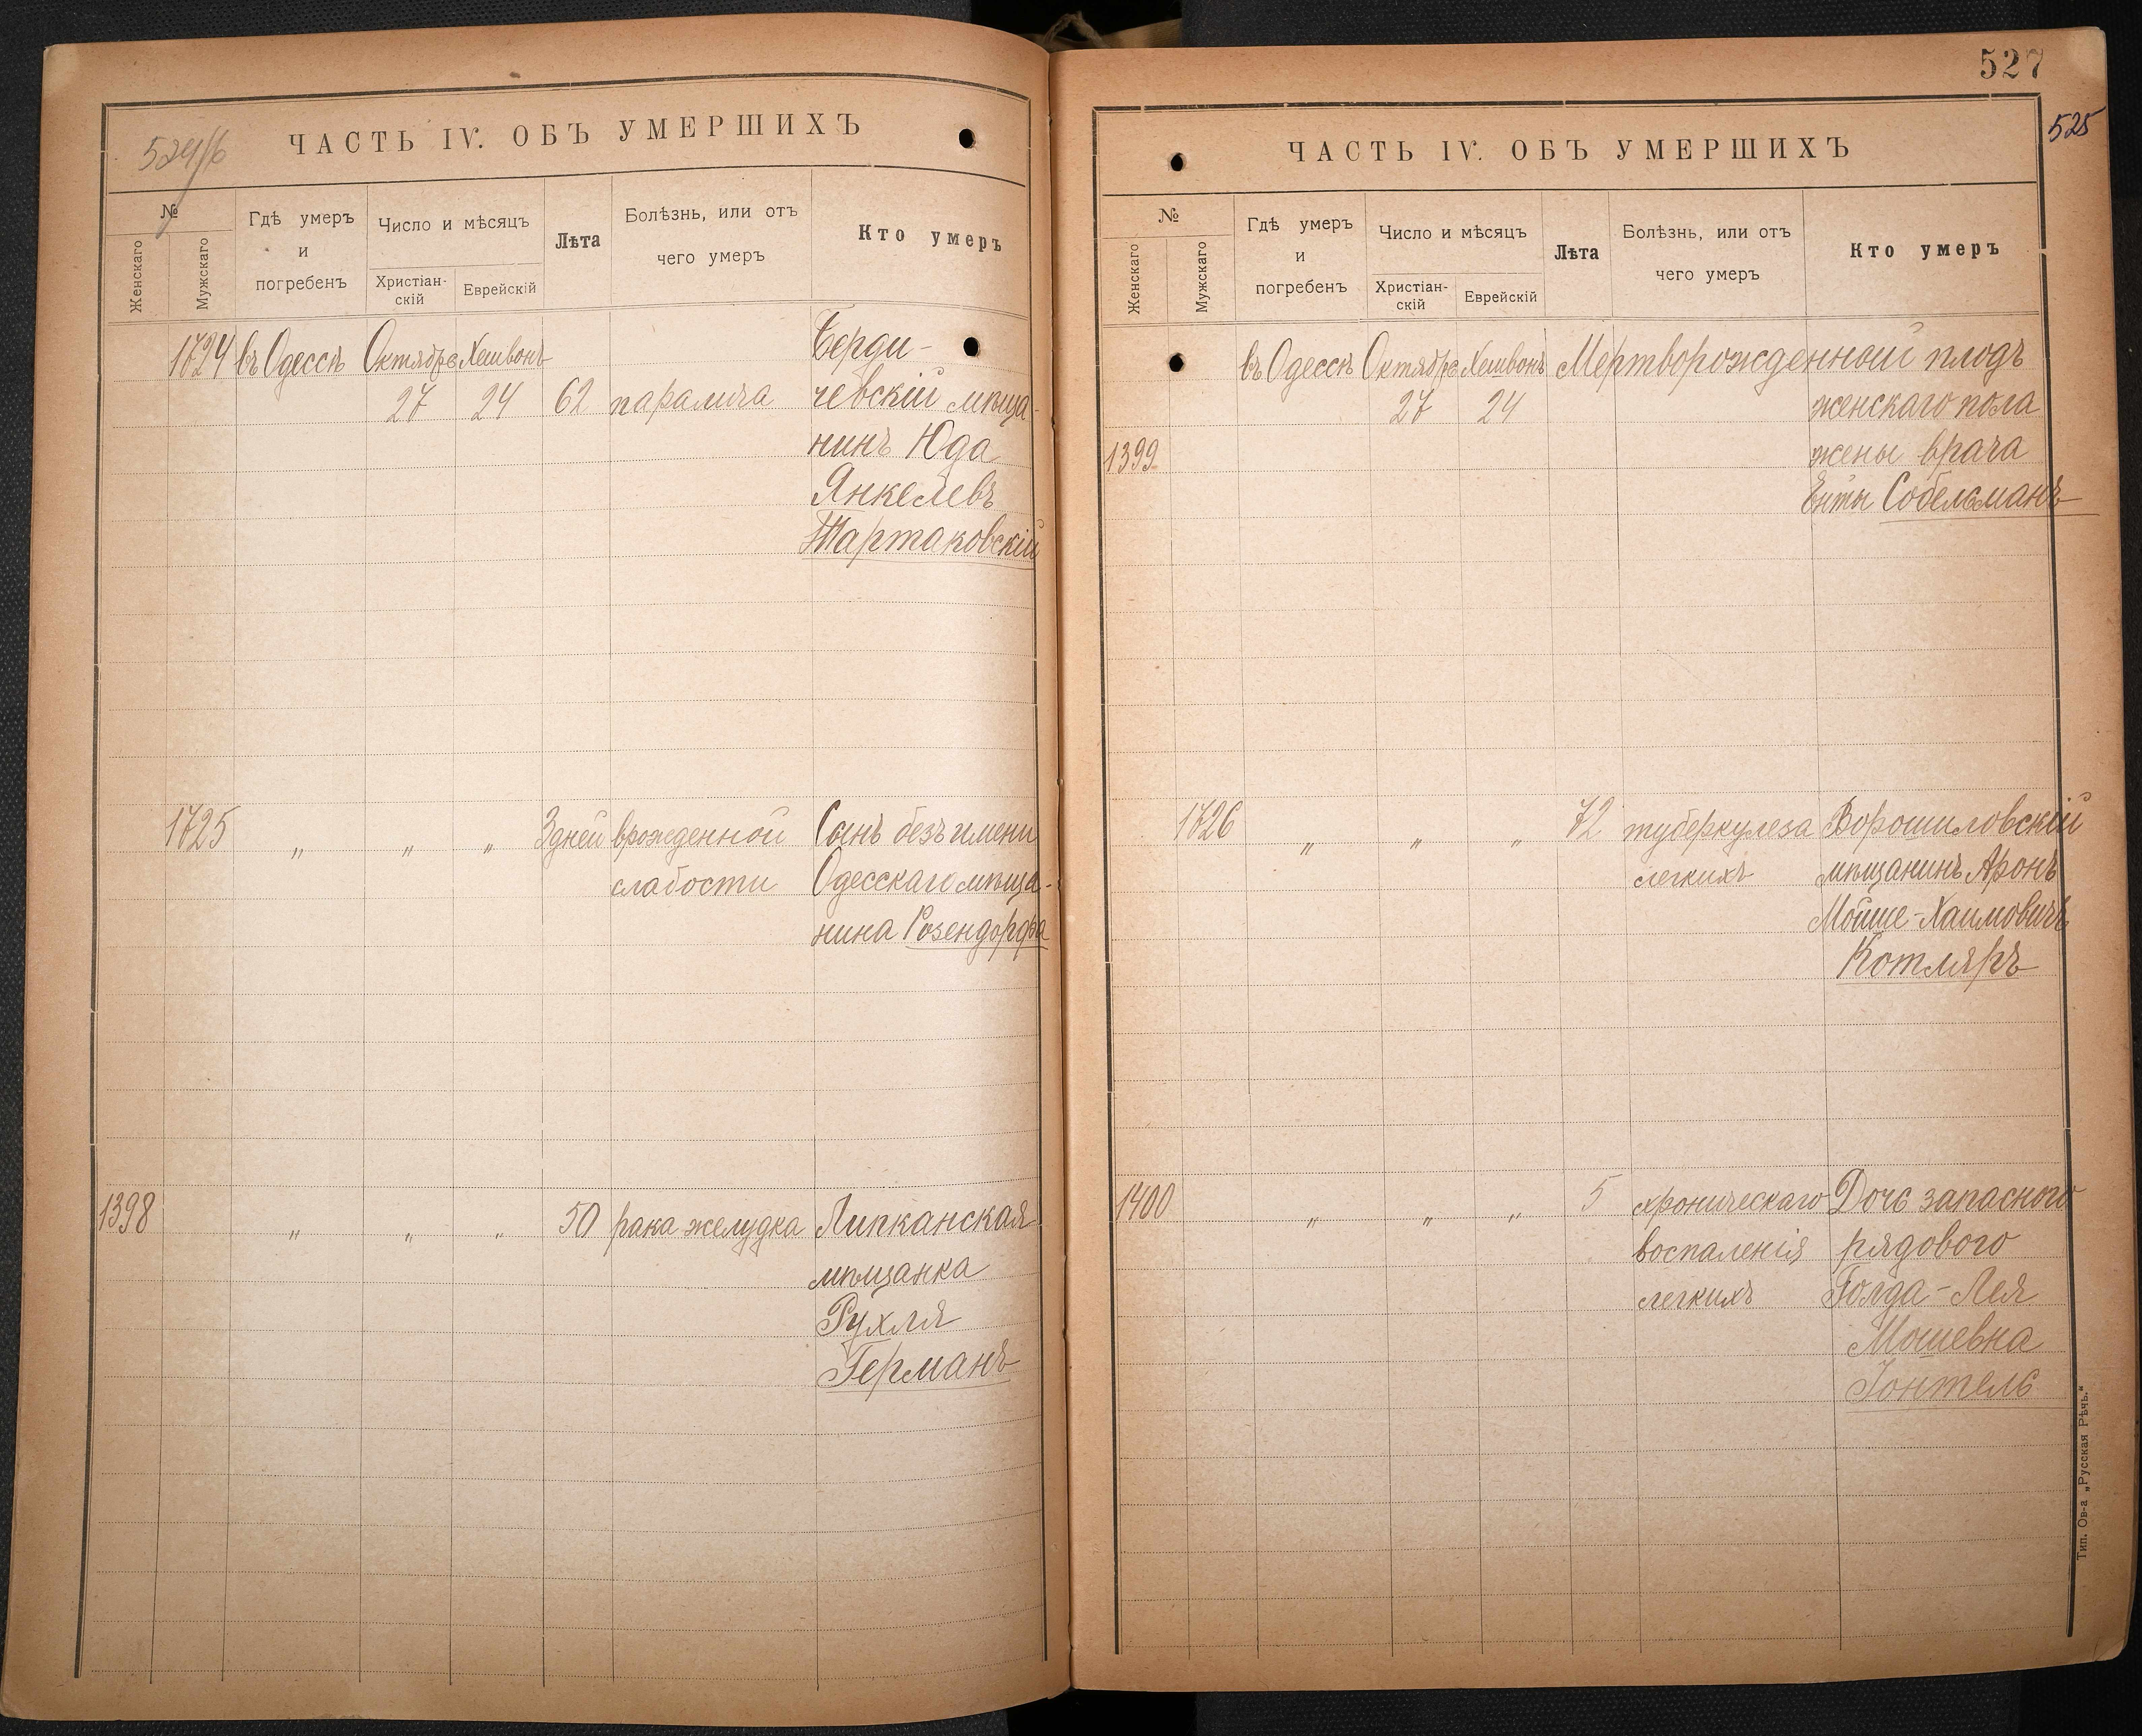 524/б
ЧАСТЬ IV. ОБЪ УМЕРШИХЪ
№
Женскаго
Мужскаго
Гдѣ умеръ
и
погребенъ
Число и мѣсяцъ
Христіан-
скій
Еврейскій
Лѣта
Болѣзнь, или отъ
чего умеръ
Кто умеръ
1724 въ Одессѣ Октября Хешвонъ Берди-
27 24 62 паралича чевскій мѣща-
нинъ Юда
Янкелевъ
Тартаковскій
1725 " " " 3 дней врожденной Сынъ безъ имени
слабости Одесскаго мѣща-
нина Розендорфа
1398 " " " 50 рака желудка Липканская
мѣщанка
Рухля
Германъ
527
525
ЧАСТЬ IV. ОБЪ УМЕРШИХЪ
№
Женскаго
Мужскаго
Гдѣ умеръ
и
погребенъ
Число и мѣсяцъ
Христіан-
скій
Еврейскій
Лѣта
Болѣзнь, или отъ
чего умеръ
Кто умеръ
въ Одессѣ Октября Хешвонъ Мертворожденной плодъ
27 24 женскаго пола
1399 жены врача
Енты Собельманъ
1726 " " " 72 туберкулеза Ворошиловскій
легкихъ мѣщанинъ Аронъ
Мойше-Хаимовичъ
Котляръ
1400 " " " 5 хроническаго Дочь запасного
воспаленія рядового
легкихъ Голда-Лея
Мошевна
Іонтель
Тип. Ов-а „Русская Рѣчь."